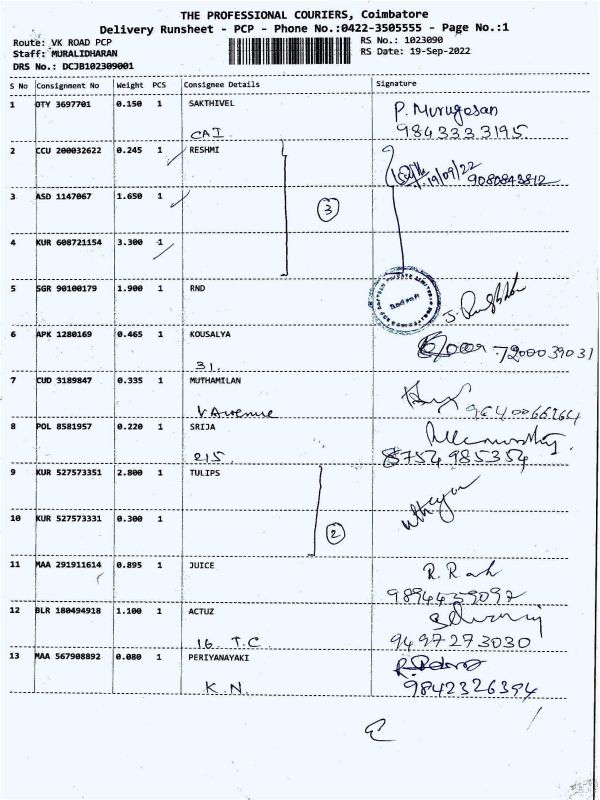 THE PROFESSIONAL COURIERS, Coimbatore
Delivery Runsheet - PCP - Phone No.:0422-3505555 - Page No.:1
Route: VK ROAD PCP
RS No.: 1023090
Staff: MURALIDHARAN
RS Date: 19-Sep-2022
DRS No.: DCJB102309001
S No Consignment No Weight PCS Consignee Details Signature
1 OTY 3697701 0.150 1 SAKTHIVEL P. Murugesan
CAI 9843333195
2 CCU 200032622 0.245 1 RESHMI
19/09/22 9080843812
3 ASD 1147067 1.650 1
3
4 KUR 608721154 3.300 1
5 SGR 90100179 1.900 1 RND
6 APK 1280169 0.465 1 KOUSALYA
31. 7200039031
7 CUD 3189847 0.335 1 MUTHAMILAN
V Avenue
8 POL 8581957 0.220 1 SRIJA
215. 8754985354
9 KUR 527573351 2.800 1 TULIPS
10 KUR 527573331 0.300 1
2
11 MAA 291911614 0.895 1 JUICE
9894459092
12 BLR 180494918 1.100 1 ACTUZ
16 T.C 9497273030
13 MAA 567908892 0.080 1 PERIYANAYAKI
K.N. 9842326394